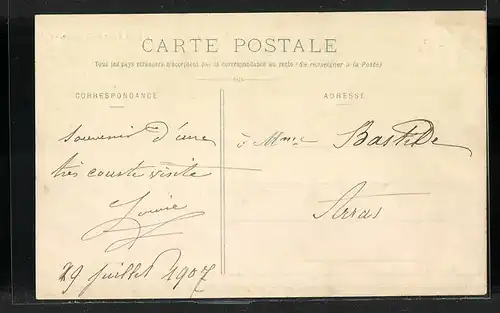 CARTE POSTALE
Tous les pays étrangers n'acceptent pas la correspondance au recto (Se renseigner à la Poste)
CORRESPONDANCE
ADRESSE
Souvenir d'une
très courte visite
Louise
29 juillet 1907
à Mme Bastide
Arras